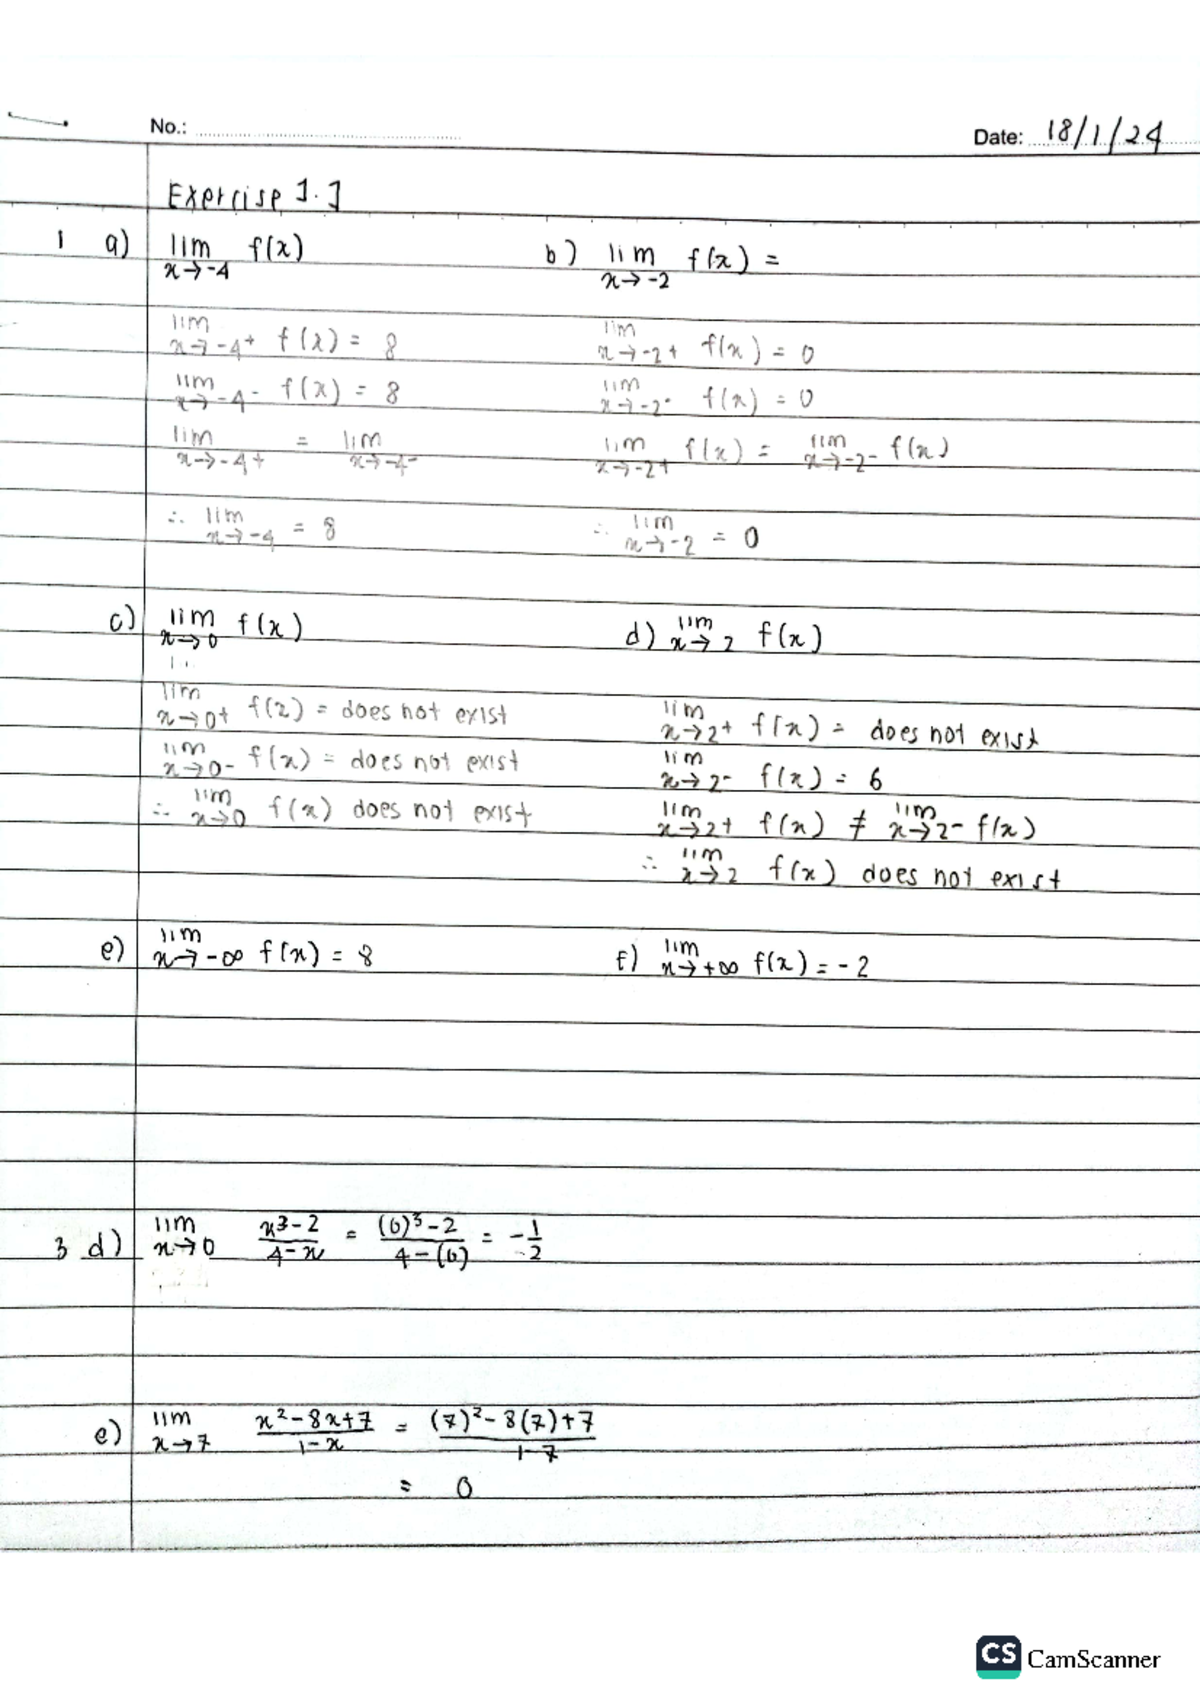 No.: Date: 18/1/24
Exercise 1.1
1 a) lim x→-4 f(x) b) lim x→-2 f(x) =
lim x→-4+ f(x) = 8 lim x→-2+ f(x) = 0
lim x→-4- f(x) = 8 lim x→-2- f(x) = 0
lim x→-4+ = lim x→-4- lim x→-2+ f(x) = lim x→-2- f(x)
∴ lim x→-4 = 8 ∴ lim x→-2 = 0
c) lim x→0 f(x) d) lim x→2 f(x)
lim x→0+ f(x) = does not exist lim x→2+ f(x) = does not exist
lim x→0- f(x) = does not exist lim x→2- f(x) = 6
∴ lim x→0 f(x) does not exist lim x→2+ f(x) ≠ lim x→2- f(x)
∴ lim x→2 f(x) does not exist
e) lim x→-∞ f(x) = 8 f) lim x→+∞ f(x) = -2
3 d) lim x→0 x³-2 / 4-x = (0)³-2 / 4-(0) = -1/2
e) lim x→7 x²-8x+7 / 1-x = (7)²-8(7)+7 / 1-7
= 0
CS CamScanner